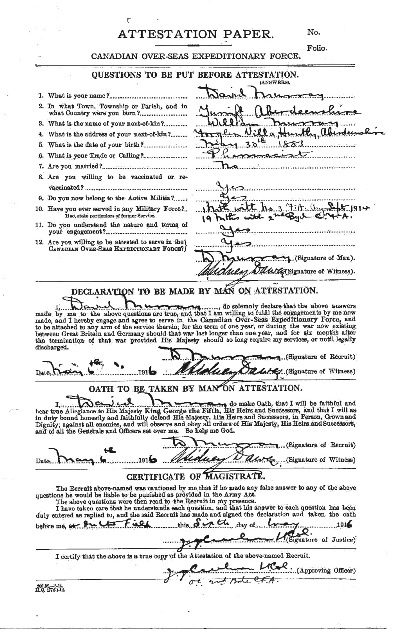 ATTESTATION PAPER.
No.
Folio.
CANADIAN OVER-SEAS EXPEDITIONARY FORCE.
QUESTIONS TO BE PUT BEFORE ATTESTATION.
(ANSWERS).
1. What is your name? David Murray
2. In what Town, Township or Parish, and in
what Country were you born? Aberdeenshire
3. What is the name of your next-of-kin? William Murray
4. What is the address of your next-of-kin? Villa Huntly, Aberdeenshire
5. What is the date of your birth? 30th 1881
6. What is your Trade or Calling? Pharmacist
7. Are you married? No
8. Are you willing to be vaccinated or re-
vaccinated? Yes
9. Do you now belong to the Active Militia? Yes
10. Have you ever served in any Military Force?
If so, state particulars of former Service. 19 mths with 2nd
11. Do you understand the nature and terms of
your engagement? Yes
12. Are you willing to be attested to serve in the
CANADIAN OVER-SEAS EXPEDITIONARY FORCE? Yes
D. Murray (Signature of Man).
(Signature of Witness).
DECLARATION TO BE MADE BY MAN ON ATTESTATION.
I, David Murray, do solemnly declare that the above answers
made by me to the above questions are true, and that I am willing to fulfil the engagements by me now
made, and I hereby engage and agree to serve in the Canadian Over-Seas Expeditionary Force, and
to be attached to any arm of the service therein, for the term of one year, or during the war now existing
between Great Britain and Germany should that war last longer than one year, and for six months after
the termination of that war provided His Majesty should so long require my services, or until legally
discharged.
D. Murray (Signature of Recruit)
Date May 6th 1916 (Signature of Witness)
OATH TO BE TAKEN BY MAN ON ATTESTATION.
I, David Murray, do make Oath, that I will be faithful and
bear true Allegiance to His Majesty King George the Fifth, His Heirs and Successors, and that I will as
in duty bound honestly and faithfully defend His Majesty, His Heirs and Successors, in Person, Crown and
Dignity, against all enemies, and will observe and obey all orders of His Majesty, His Heirs and Successors,
and of all the Generals and Officers set over me. So help me God.
D. Murray (Signature of Recruit)
Date May 6th 1916 (Signature of Witness)
CERTIFICATE OF MAGISTRATE.
The Recruit above-named was cautioned by me that if he made any false answer to any of the above
questions he would be liable to be punished as provided in the Army Act.
The above questions were then read to the Recruit in my presence.
I have taken care that he understands each question, and that his answer to each question has been
duly entered as replied to, and the said Recruit has made and signed the declaration and taken the oath
before me, at Field this Sixth day of May 1916
(Signature of Justice)
I certify that the above is a true copy of the Attestation of the above-named Recruit.
(Approving Officer)